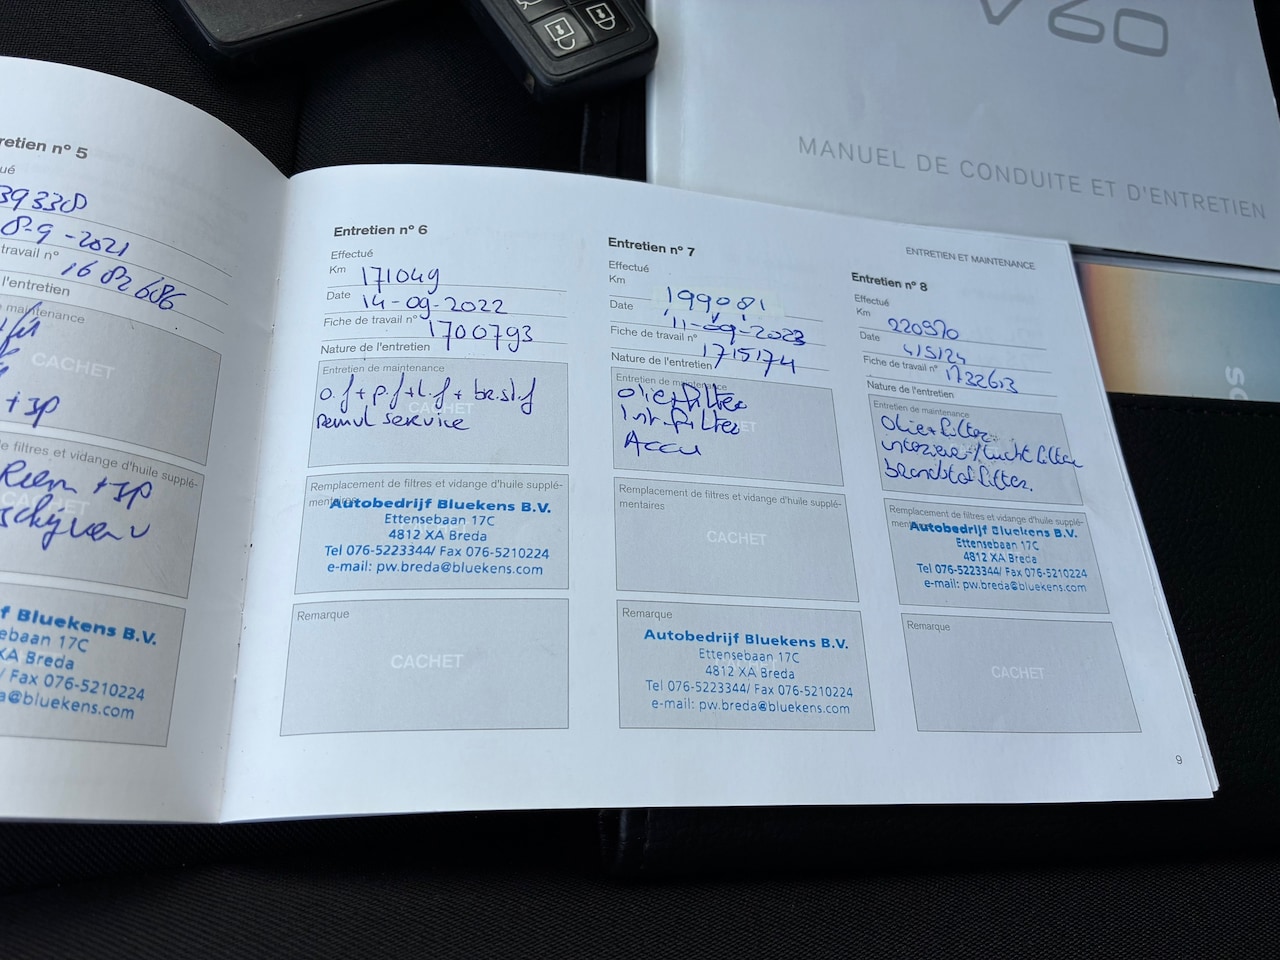 V60
MANUEL DE CONDUITE ET D'ENTRETIEN
retien nº 5
ué
39338
8-9-2021
travail nº 1682686
l'entretien
maintenance
CACHET
+ 3p
de filtres et vidange d'huile supplé-
Riem + 3p
schyven v
CACHET
f Bluekens B.V.
ebaan 17C
XA Breda
/ Fax 076-5210224
a@bluekens.com
Entretien nº 6
Effectué
Km 171049
Date 14-09-2022
Fiche de travail nº 1700793
Nature de l'entretien
Entretien de maintenance
o.f + p.f + l.f + br.st.f
CACHET
service
Remplacement de filtres et vidange d'huile supplé-
mentaires
Autobedrijf Bluekens B.V.
Ettensebaan 17C
4812 XA Breda
Tel 076-5223344/ Fax 076-5210224
e-mail: pw.breda@bluekens.com
Remarque
CACHET
Entretien nº 7
Effectué
Km 199081
Date 11-09-2023
Fiche de travail nº 1715174
Nature de l'entretien
Entretien de maintenance
olie+filter
Int. filter
Accu
Remplacement de filtres et vidange d'huile supplé-
mentaires
CACHET
Remarque
Autobedrijf Bluekens B.V.
Ettensebaan 17C
4812 XA Breda
Tel 076-5223344/ Fax 076-5210224
e-mail: pw.breda@bluekens.com
ENTRETIEN ET MAINTENANCE
Entretien nº 8
Effectué
Km 220970
Date 4/5/24
Fiche de travail nº 1732613
Nature de l'entretien
Entretien de maintenance
olie+filter
interieur/lucht filter
brandstof filter.
Remplacement de filtres et vidange d'huile supplé-
Autobedrijf Bluekens B.V.
Ettensebaan 17C
4812 XA Breda
Tel 076-5223344/ Fax 076-5210224
e-mail: pw.breda@bluekens.com
Remarque
CACHET
9